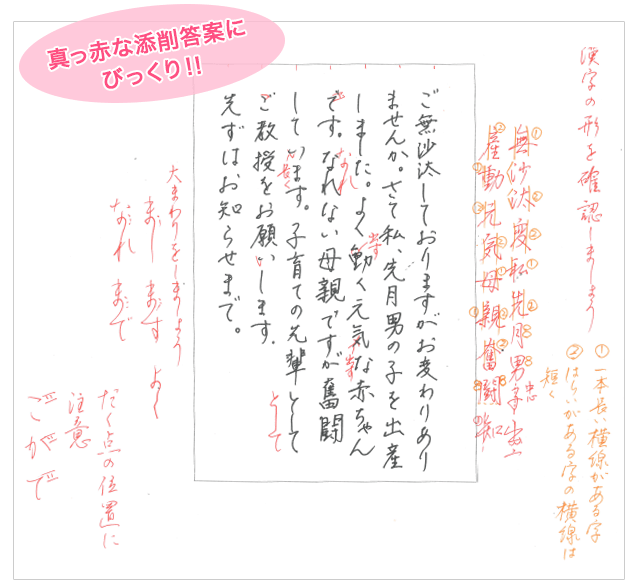 真っ赤な添削答案に
びっくり!!
漢字の形を確認しましょう
①一本長い横線がある字
②はらいがある字の横線は
短く
無沙汰変私先月男子出
産動元気母親奮闘知
ご無沙汰しておりますがお変わりあり
ませんか。さて私、先月男の子を出産
しました。よく動く元気な赤ちゃん
です。なれない母親ですが奮闘
しています。子育ての先輩として
ご教授をお願いします.
先ずはお知らせまで。
なれ
出す
長く
出す
として
大まわりをしましょう
まし ます よ
なれ まで
だく点の位置に
注意
ごがで